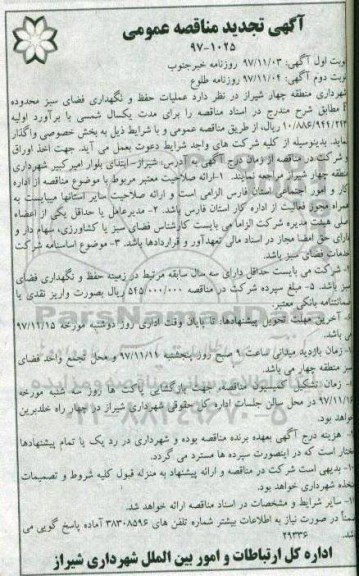 آگهی تجدید مناقصه عمومی
۹۷-۱۰۲۵
نوبت اول آگهی: ۹۷/۱۱/۰۳ روزنامه خبرجنوب
نوبت دوم آگهی: ۹۷/۱۱/۰۴ روزنامه طلوع
شهرداری منطقه چهار شیراز در نظر دارد عملیات حفظ و نگهداری فضای سبز محدوده
مطابق شرح مندرج در اسناد مناقصه را برای مدت یکسال شمسی با برآورد اولیه
ریال، از طریق مناقصه عمومی و با شرایط ذیل به بخش خصوصی واگذار
نماید. بدینوسیله از کلیه شرکت های واجد شرایط دعوت بعمل می آید. جهت اخذ اوراق
و شرکت در مناقصه از زمان درج آگهی به آدرس: شیراز-انتهای بلوار امیرکبیر شهرداری
منطقه چهار شیراز مراجعه نمایند. ۱-ارائه صلاحیت معتبر مربوط با موضوع مناقصه از اداره
کار و امور اجتماعی استان فارس الزامی است و ارائه صلاحیت سایر استانها میبایست به
همراه مجوز فعالیت از اداره کار استان فارس باشد. ۲- مدیرعامل یا حداقل یکی از اعضاء
اصلی هیئت مدیره شرکت الزاما می بایست کارشناس فضای سبز یا کشاورزی، سهام دار و
دارای حق امضا مجاز در اسناد مالی تعهدآور و قراردادها باشد. ۳- موضوع اساسنامه شرکت
خدمات فضای سبز باشد.
۴- شرکت می بایست حداقل دارای سه سال سابقه مرتبط در زمینه حفظ و نگهداری فضای
سبز باشد. ۵- مبلغ سپرده شرکت در مناقصه ۵۴۵/۰۰۰/۰۰۰ ریال بصورت واریز نقدی یا
ضمانتنامه بانکی معتبر.
آخرین مهلت تحویل پیشنهادها، تا پایان وقت اداری روز دوشنبه مورخه ۹۷/۱۱/۱۵
می باشد.
زمان بازدید میدانی ساعت ۹ صبح روز پنجشنبه ۹۷/۱۱/۱۱ و محل تجمع واحد فضای
سبز منطقه چهار می باشد.
زمان تشکیل کمیسیون مناقصه، جهت بازگشایی پاکت ها، روز سه شنبه مورخه
۹۷/۱۱/۱۶ در محل سالن جلسات اداره کل حقوقی شهرداری شیراز در چهار راه خلدبرین
خواهد بود.
هزینه درج آگهی بعهده برنده مناقصه بوده و شهرداری در رد یک یا تمام پیشنهادها
مختار است که در اینصورت سپرده ها مسترد می گردد.
بدیهی است شرکت در مناقصه و ارائه پیشنهاد به منزله قبول کلیه شروط و تصمیمات
شهرداری خواهد بود.
سایر شرایط و مشخصات در اسناد مناقصه ارائه خواهد شد.
ضمناً در صورت نیاز به اطلاعات بیشتر شماره تلفن های ۳۸۳۰۸۵۹۶ آماده پاسخ گویی می
باشد. ۲۹۳۳۶
اداره کل ارتباطات و امور بین الملل شهرداری شیراز
ParsNamadData
۰۲۱-۸۸۳۴۹۶۷۰-۵